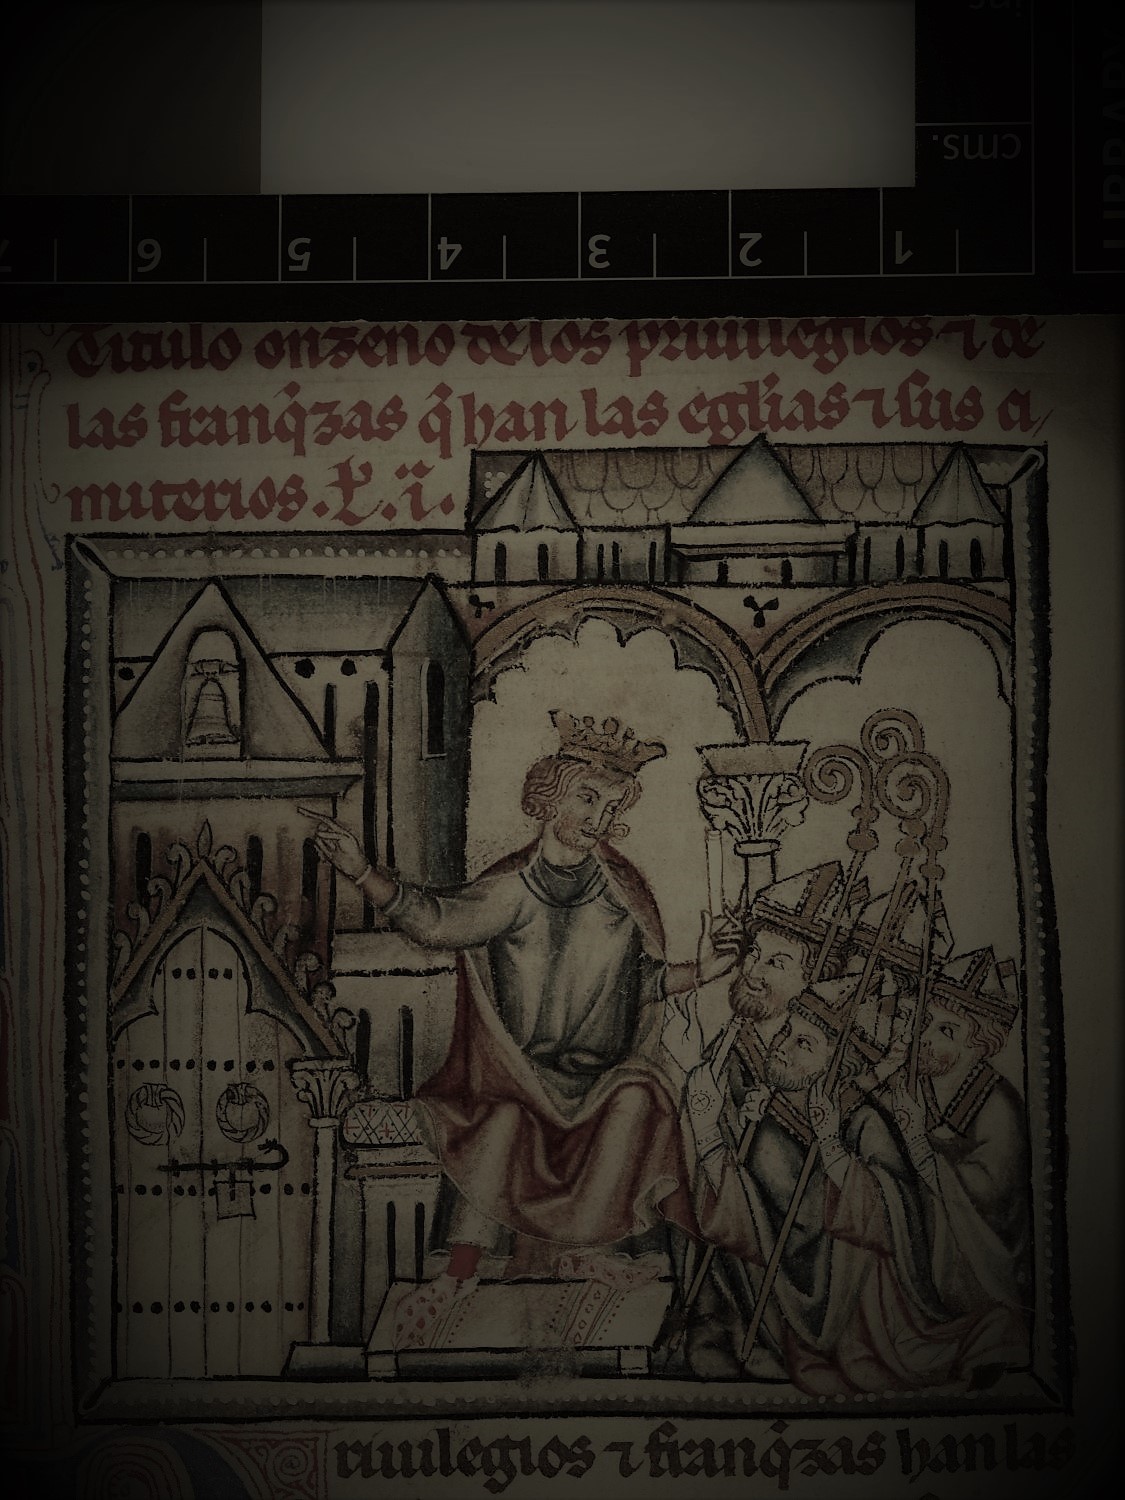 cms.
7 6 5 4 3 2 1
Titulo onzeno de los priuilegios ⁊ de
las franq̇zas q̇ han las eglĩas ⁊ sus ci/
miterios.
riuilegios ⁊ franq̇zas han las